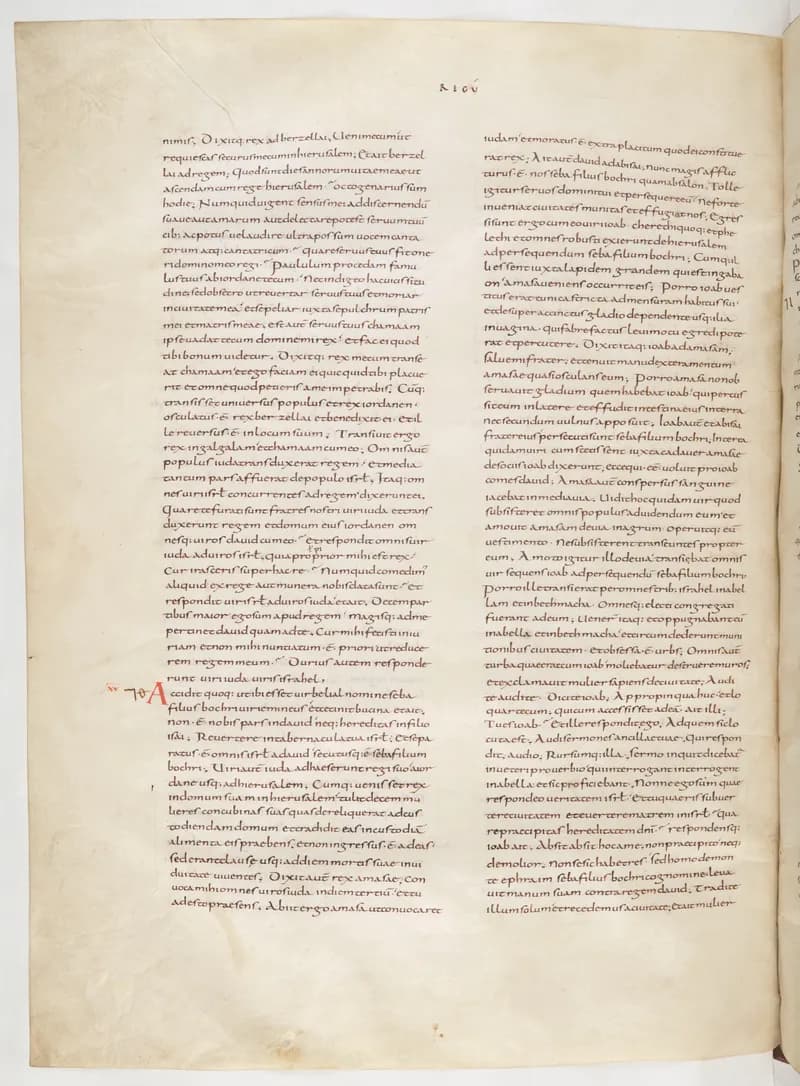 RIGŪ
nimis, Dixitq: rex ad berzellai, Ueni mecum ut
requiescas securus mecum in hierusalem; Et ait berzel
lai ad regem; Quod sunt dies annorum uitae meae ut
ascendam cum rege hierusalem. Octogenarius sum
hodie; Numquid uigent sensus mei ad discernendū
suaue aut amarum aut delectare potest seruum tuū
cibus ac potus uel audire ultra possum uocem canta
torum atq: cantatricum. Quare seruus tuus fit one
ri domino meo regi. Paululum procedam famu
lus tuus ab iordane tecum. Nec indigeo hac uicissitu
dine sed obsecro ut reuertar seruus tuus et moriar
in ciuitate mea et sepeliar iuxta sepulchrum patris
mei et matris meae, est aūt seruus tuus chamaam
ipse uadat tecum domine mi rex et fac ei quod
tibi bonum uidetur. Dixitq: rex mecum transe
at chamaam et ego faciam ei quicquid tibi placue
rit et omne quod petieris a me impetrabis, Cūq:
transisset uniuersus populus et rex iordanen
osculatus ē rex berzellai et benedixit ei. et il
le reuersus ē in locum suum, Transiuit ergo
rex in galgalam et chamaam cum eo; Omnis aūt
populus iuda transduxerat regem et media
tantum pars affuerat de populo isrł. Itaq: om
nes uiri isrł concurrentes ad regem dixerunt ei.
Quare te furati sunt fratres nostri uiri iuda et trans
duxerunt regem et domum eius iordanen om
nesq: uiros dauid cum eo. Et respondit omnis uir
iuda ad uiros isrł, quia propior mihi est rex
Cur irasceris super hac re. Numquid comedimꝰ
aliquid ex rege aut munera nobis data sunt. Et
respondit uir isrł ad uiros iuda et ait, Decem par
tibus maior ego sum apud regem magisq: ad me
pertinet dauid quam ad te, Cur mihi fecisti iniu
riam et non mihi nuntiatum ē priori ut reduce
rem regem meum. Durius autem responde
runt uiri iuda uiris israhel,
Accidit quoq: ut ibi esset uir belial nomine seba
filius bochri uir iemineus et cecinit bucina et ait,
non ē nobis pars in dauid neq: hereditas in filio
isai, Reuertere in tabernacula tua isrł, Et sepa
ratus ē omnis isrł a dauid secutusq: ē seba filium
bochri, Uiri aūt iuda adhaeserunt regi suo a ior
dane usq: ad hierusalem, Cumq: uenisset rex
in domum suam in hierusalem tulit decem mu
lieres concubinas suas quas dereliquerat ad cus
todiendam domum et tradidit eas in custodiā
alimenta eis praebens, et non ingressus ē ad eas
sed erant clausae usq: ad diem mortis suae in ui
duitate uiuentes, Dixit aūt rex amasae, Con
uoca mihi omnes uiros iuda in diem tertiū et tu
adesto praesens, Abiit ergo amasa ut conuocaret
iudam et moratus ē extra placitum quod ei constitue
rat rex, Ait aūt dauid ad abisai, nunc magis afflic
turus ē nos seba filius bochri quam absalon, Tolle
igitur seruos domini tui et persequere eū ne forte
inueniat ciuitates munitas et effugiat nos, Egres
si sunt ergo cum eo uiri ioab. cherethi quoq: et phe
lethi et omnes robusti exierunt de hierusalem
ad persequendum seba filium bochri, Cumq: il
li essent iuxta lapidem grandem qui est in gaba
on amasa ueniens occurrit eis, Porro ioab ues
titus erat tunica stricta ad mensuram habitus sui
et desuper accinctus gladio dependente usq: ilia
in uagina qui fabrefactus leui motu egredi pote
rat et percutere, Dixit itaq: ioab ad amasam,
salue mi frater, et tenuit manu dextera mentum
amasae quasi osculans eum; Porro amasa non ob
seruauit gladium quem habebat ioab qui percus
sit eum in latere et effudit intestina eius in terra
nec secundum uulnus apposuit; Ioab aūt et abisai
frater eius persecuti sunt seba filium bochri, Interea
quidam uiri cum stetissent iuxta cadauer amasae
de sociis ioab dixerunt, ecce qui eē uoluit pro ioab
comes dauid; Amasa aūt conspersus sanguine
iacebat in media uia, Uidit hoc quidam uir quod
subsisteret omnis populus ad uidendum eum et
amouit amasam de uia in agrum operuitq: eū
uestimento. Ne subsisterent transeuntes propter
eum, Amoto igitur illo de uia transiebat omnis
uir sequens ioab ad persequendū seba filium bochri,
Porro ille transierat per omnes trib: israhel in abel
lam et in bethmacha, Omnesq: electi congregati
fuerant ad eum, Uener itaq: et oppugnabant eū
in abella et in bethmacha et circumdederunt muni
tionibus ciuitatem et obsessa ē urbs, Omnis aūt
turba quae erat cum ioab moliebatur destruere muros,
et exclamauit mulier sapiens de ciuitate, Audi
te audite. Dicite ioab, Appropinqua huc et lo
quar tecum, qui cum accessisset ad eā. ait illi,
Tu es ioab. Et ille respondit, ego, Ad quem sic lo
cuta est, Audi sermones ancillae tuae, Qui respon
dit, audio, Rursumq: illa, sermo inquit dicebaṫ
in ueteri prouerbio qui interrogant interrogent
in abella et sic proficiebant, Nonne ego sum quae
respondeo ueritatem isrł et tu quaeris subuer
tere ciuitatem et euertere matrem in isrł. Qua
re praecipitas hereditatem dnī. Respondensq:
ioab ait, Absit absit hoc a me, non praecipito neq:
demolior, Non se sic habet res sed homo de mon
te ephraim seba filius bochri cognomine leua
uit manum suam contra regem dauid, Tradite
illum solum et recedemus a ciuitate, Et ait mulier